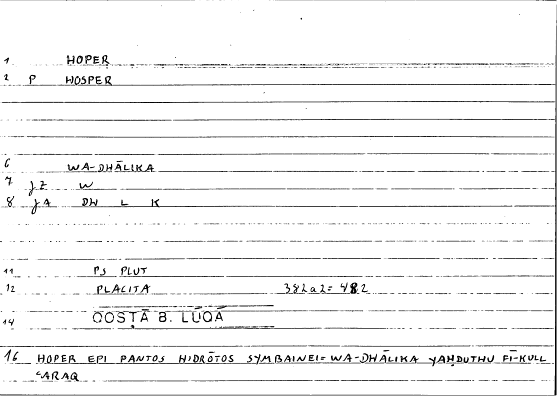 1 HOPER
2 P HOSPER
6 WA-DHĀLIKA
7 JZ W
8 JA DH L K
11 PS PLUT
12 PLACITA 382a2= 482
14 QOSṬĀ B. LŪQĀ
16 HOPER EPI PANTOS HIDRŌTOS SYMBAINEI= WA-DHĀLIKA YAḤDUTHU FĪ-KULL
ʿARAQ